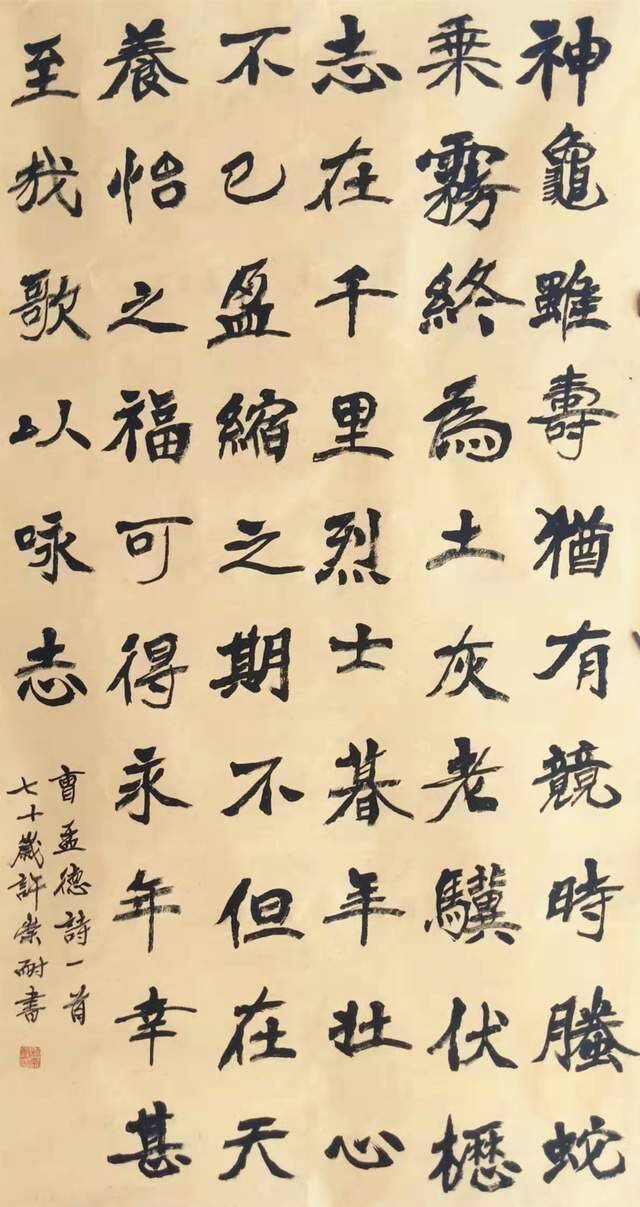 神龜雖壽猶有競時螣蛇
乘霧終為土灰老驥伏櫪
志在千里烈士暮年壯心
不已盈縮之期不但在天
養怡之福可得永年幸甚
至我歌以咏志
曹孟德詩一首
七十歲許崇耐書